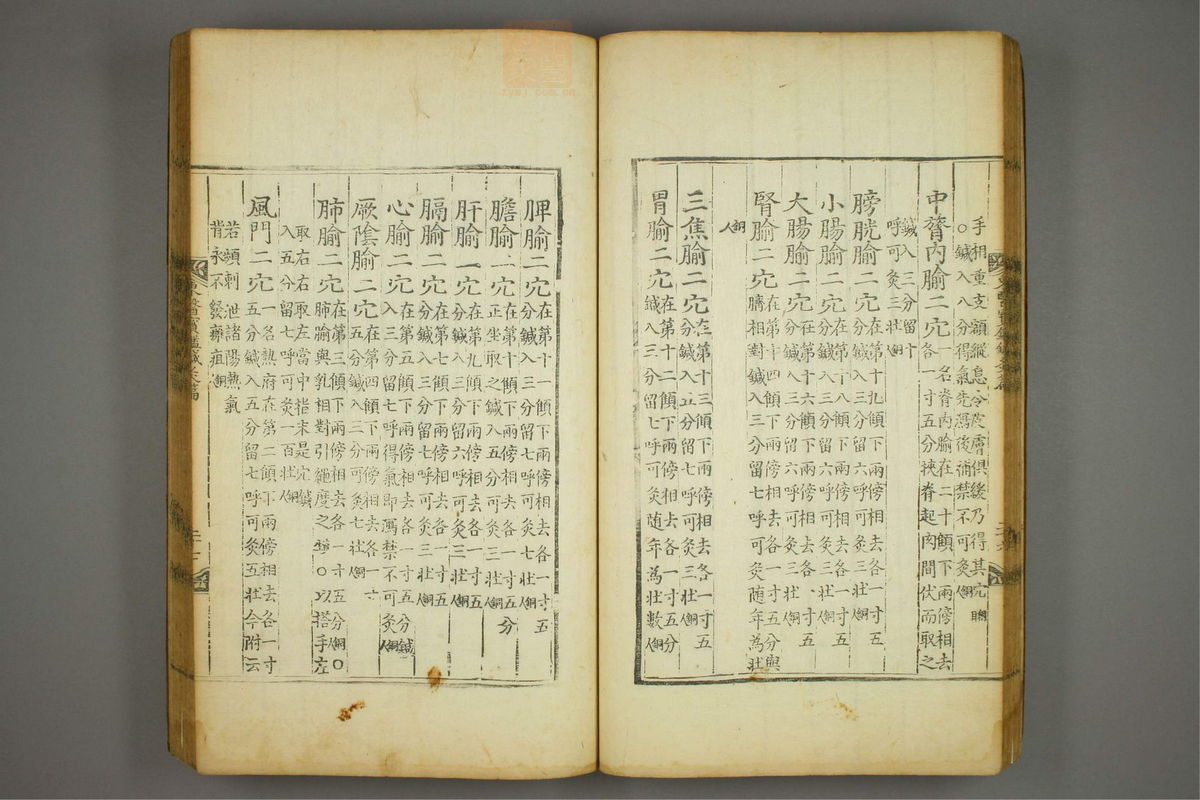 手相重支額縱息令皮膚俱緩乃得其穴
○鍼入八分得氣先瀉後補禁不可灸銅人
中膂內腧二穴一名脊內腧在二十顀下兩傍相去
各一寸五分挾脊起肉間伏而取之
鍼入三分留十
呼可灸三壯銅人
膀胱腧二穴在第十九顀下兩傍相去各一寸五
分鍼入三分留六呼可灸三壯銅人
小腸腧二穴在第十八顀下兩傍相去各一寸五
分鍼入三分留六呼可灸三壯銅人
大腸腧二穴在第十六顀下兩傍相去各一寸五
分鍼入三分留六呼可灸三壯銅人
腎腧二穴在第十四顀下兩傍相去各一寸五分與
臍相對鍼入三分留七呼可灸随年為壯
銅人
三焦腧二穴在第十三顀下兩傍相去各一寸五
分鍼入五分留七呼可灸三壯銅人
胃腧二穴在第十二顀下兩傍相去各一寸五分
鍼入三分留七呼可灸随年為壯數銅人
脾腧二穴在第十一顀下兩傍相去各一寸五
分鍼入三分留七呼可灸七壯銅人
膽腧二穴在第十顀下兩傍相去各一寸五分
正坐取之鍼入五分可灸三壯銅人
肝腧二穴在第九顀下兩傍相去各一寸五
分鍼入三分留六呼可灸三壯銅人
膈腧二穴在第七顀下兩傍相去各一寸五
分鍼入三分留七呼可灸三壯銅人
心腧二穴在第五顀下兩傍相去各一寸五分鍼
入三分留七呼得氣即瀉禁不可灸銅人
厥陰腧二穴在第四顀下兩傍相去各一寸
五分鍼入三分可灸七壯銅人
肺腧二穴在第三顀下兩傍相去各一寸五分銅人○
肺腧與乳相對引繩度之○以搭手左
取右右取左當中指末是穴鍼
入五分留七呼可灸一百壯銅人
風門二穴一名熱府在第二顀下兩傍相去各一寸
五分鍼入五分留七呼可灸五壯今附云
若頻刺泄諸陽熱氣
背永不發癰疽銅人